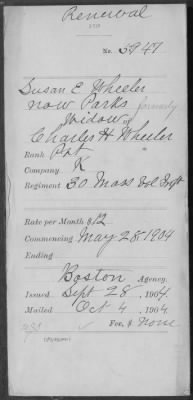 Renewal
No. 5947
Susan E. Wheeler
now Parks, formerly
Widow of
Charles H Wheeler
Rank Pvt "
Company K
Regiment 30 Mass Vol Inft
Rate per Month $12
Commencing May 28 1904
Ending
Boston Agency.
Issued Sept 28, 1904.
Mailed Oct 4, 1904
Fee, $ None